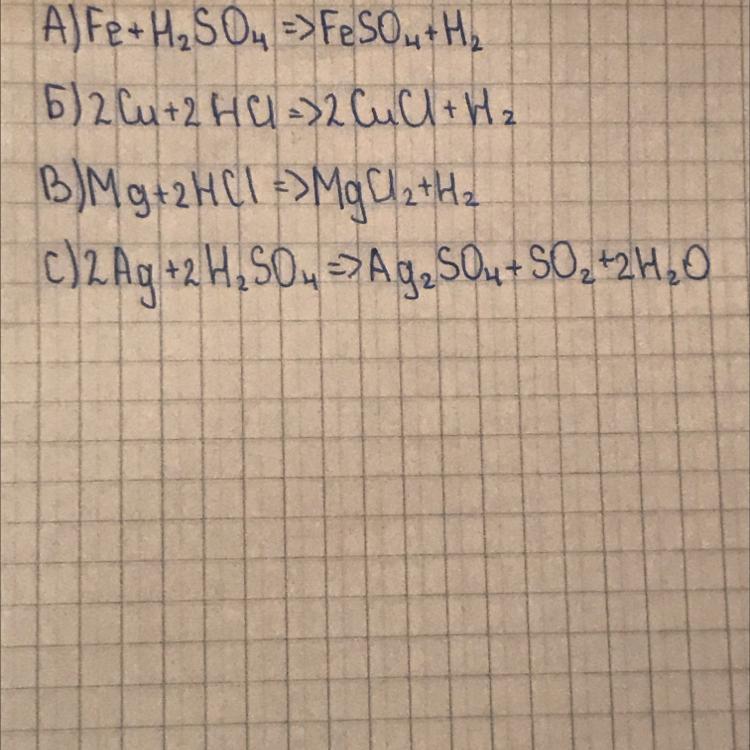 А) Fe + H₂SO₄ => FeSO₄ + H₂
Б) 2Cu + 2HCl => 2CuCl + H₂
В) Mg + 2HCl => MgCl₂ + H₂
С) 2Ag + 2H₂SO₄ => Ag₂SO₄ + SO₂ + 2H₂O